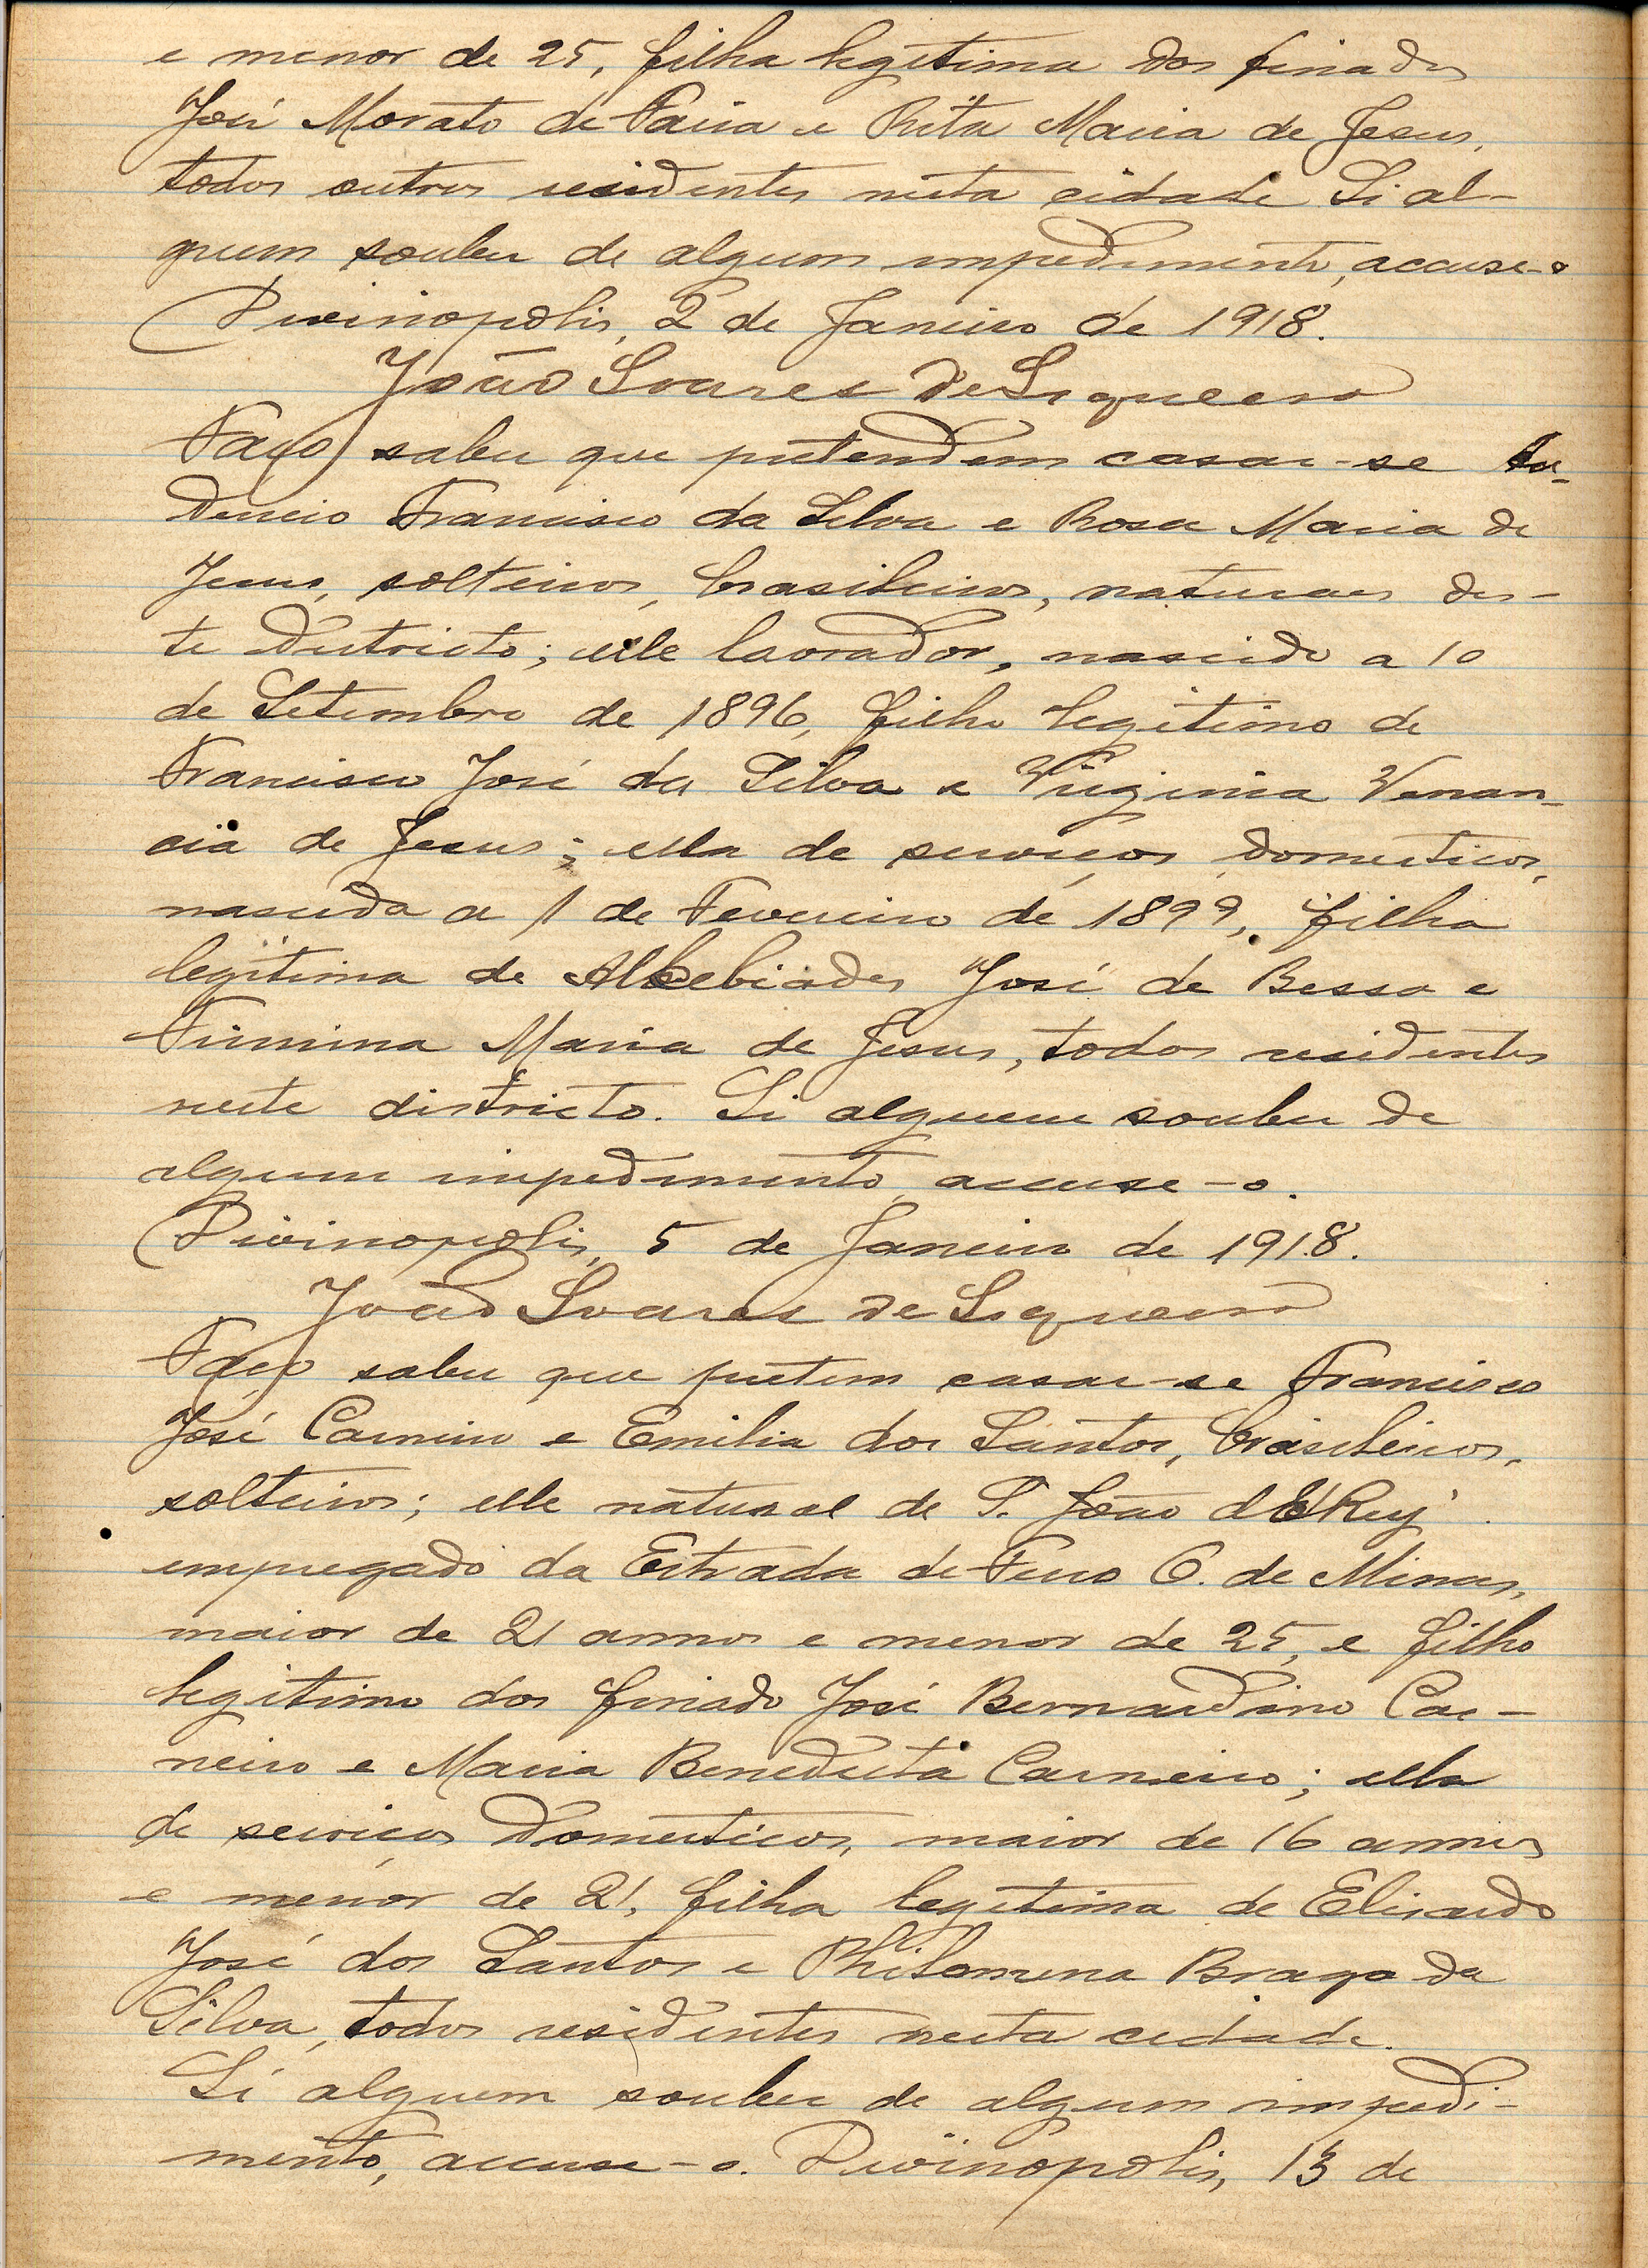 e menor de 25, filha legitima dos finados
José Morato de Faria e Rita Maria de Jesus,
todos outros residentes nesta cidade Si al-
guem souber de algum impedimento, accuse-o
Divinopolis, 2 de Janeiro de 1918.
João Soares de Siqueira
Faço saber que pretendem casar-se
dencio Francisco da Silva e Rosa Maria de
Jesus, solteiros, brasileiros, naturaes des-
te Districto; elle lavrador, nascido a 10
de Setembro de 1896, filho legitimo de
Francisco José da Silva e Virginia Venan-
cia de Jesus; ella de serviços domesticos,
nascida a 1 de Fevereiro de 1899, filha
legitima de Alcebiades José de Bessa e
Firmina Maria de Jesus, todos residentes
neste districto. Si alguem souber de
algum impedimento accuse-o.
Divinopolis, 5 de Janeiro de 1918.
João Soares de Siqueira
Faço saber que pretem casar-se Francisco
José Carneiro e Emilia dos Santos, brasileiros,
solteiros; elle natural de S. João d'El Rey
empregado da Estrada de Ferro O. de Minas,
maior de 21 annos e menor de 25, e filho
legitimo dos finado José Bernardino Car-
neiro e Maria Benedicta Carneiro; ella
de serviços domesticos, maior de 16 annos
e menor de 21, filha legitima de Elisardo
José dos Santos e Philomena Braga da
Silva, todos residentes nesta cidade.
Si alguem souber de algum impedi-
mento, accuse-o. Divinopolis, 13 de